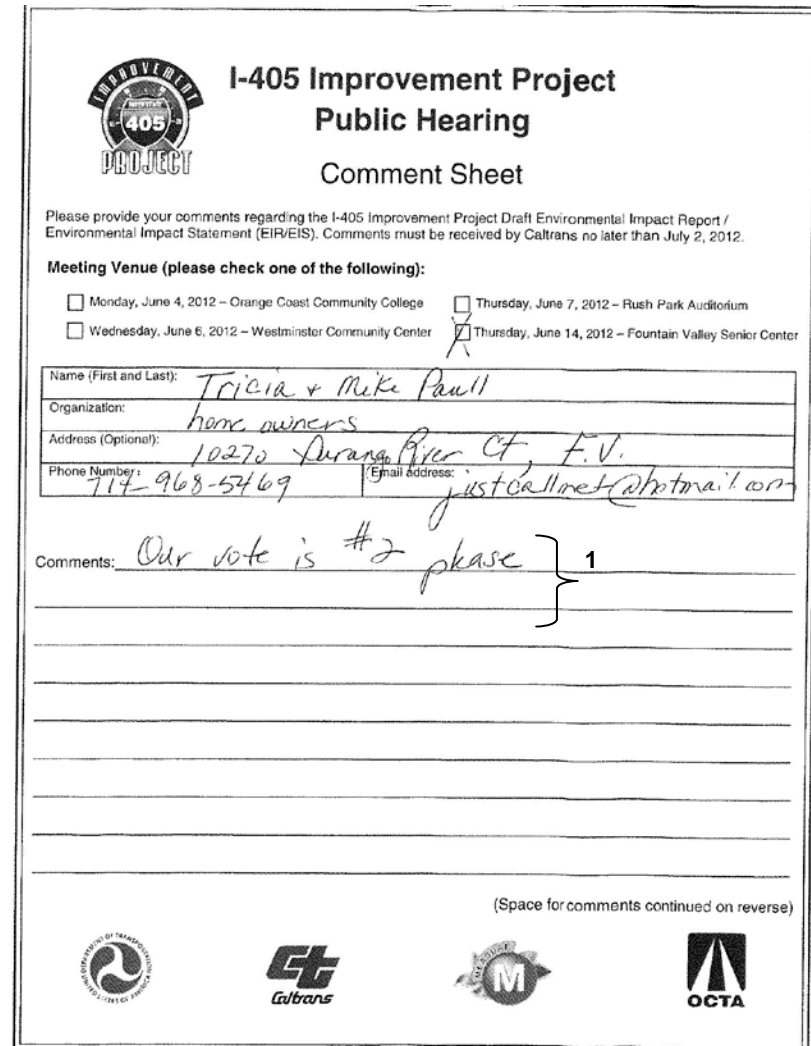 IMPROVEMENT
INTERSTATE
405
PROJECT
I-405 Improvement Project
Public Hearing
Comment Sheet
Please provide your comments regarding the I-405 Improvement Project Draft Environmental Impact Report /
Environmental Impact Statement (EIR/EIS). Comments must be received by Caltrans no later than July 2, 2012.
Meeting Venue (please check one of the following):
Monday, June 4, 2012 – Orange Coast Community College
Thursday, June 7, 2012 – Rush Park Auditorium
Wednesday, June 6, 2012 – Westminster Community Center
Thursday, June 14, 2012 – Fountain Valley Senior Center
Name (First and Last): Tricia + Mike Paull
Organization: home owners
Address (Optional): 10270 Durango River Ct, F.V.
Phone Number: 714-968-5469
Email address: justcallmet@hotmail.com
Comments: Our vote is #2 please
1
(Space for comments continued on reverse)
DEPARTMENT OF TRANSPORTATION
UNITED STATES OF AMERICA
Ct
Caltrans
MEASURE
M
OCTA